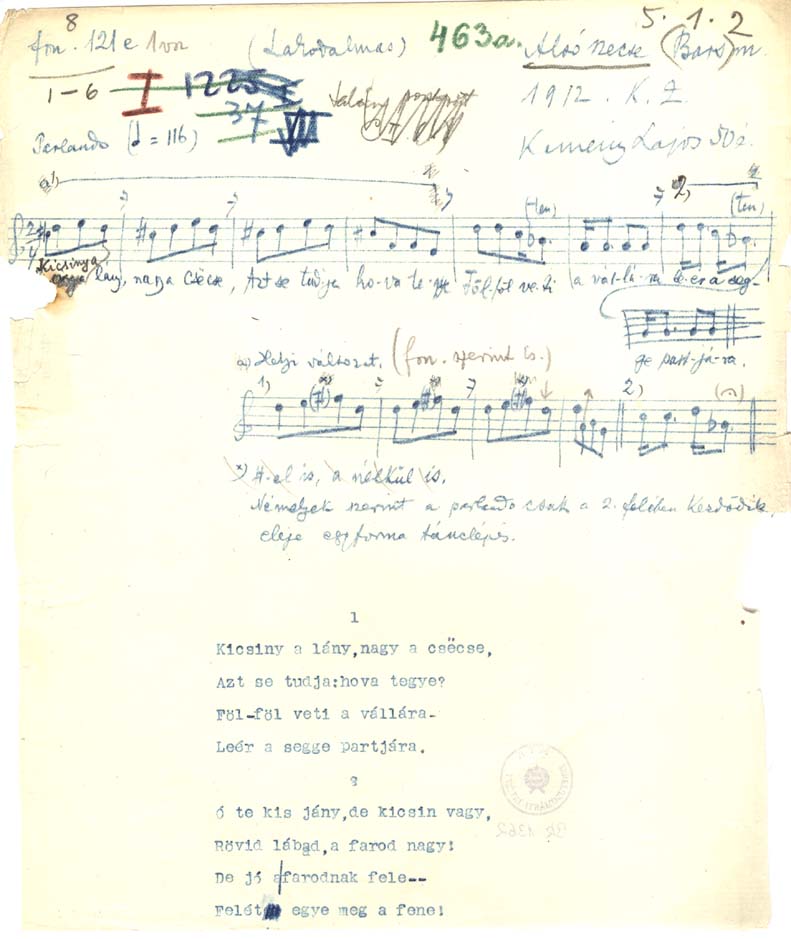 8 5. 1. 2
fon. 121e (Lakodalmas) 463a. Alsó necse (Bars)m.
1-6 I 1225 1912. K. Z.
37 VIII
Parlando (♩ = 116) Kemény Lajos 50 é.
a) 1) 2)
(ten) (ten)
Kicsiny a
lány, nagy a csëcse, Azt se tudja ho-va te-gye Föl-föl ve-ti a vál-lá-ra le-ér a seg-
ge part-já-ra.
a) Helyi változat. (fon. szerint is.)
1) 2)
x) #-el is, a nélkül is.
Némelyek szerint a parlando csak a 2. felében kezdődik,
eleje egyforma tánclépés.
1
Kicsiny a lány,nagy a csëcse,
Azt se tudja:hova tegye?
Föl-föl veti a vállára-
Leér a segge partjára.
2
Ó te kis jány,de kicsin vagy,
Rövid lábad,a farod nagy!
De jó a farodnak fele--
Felét egye meg a fene!